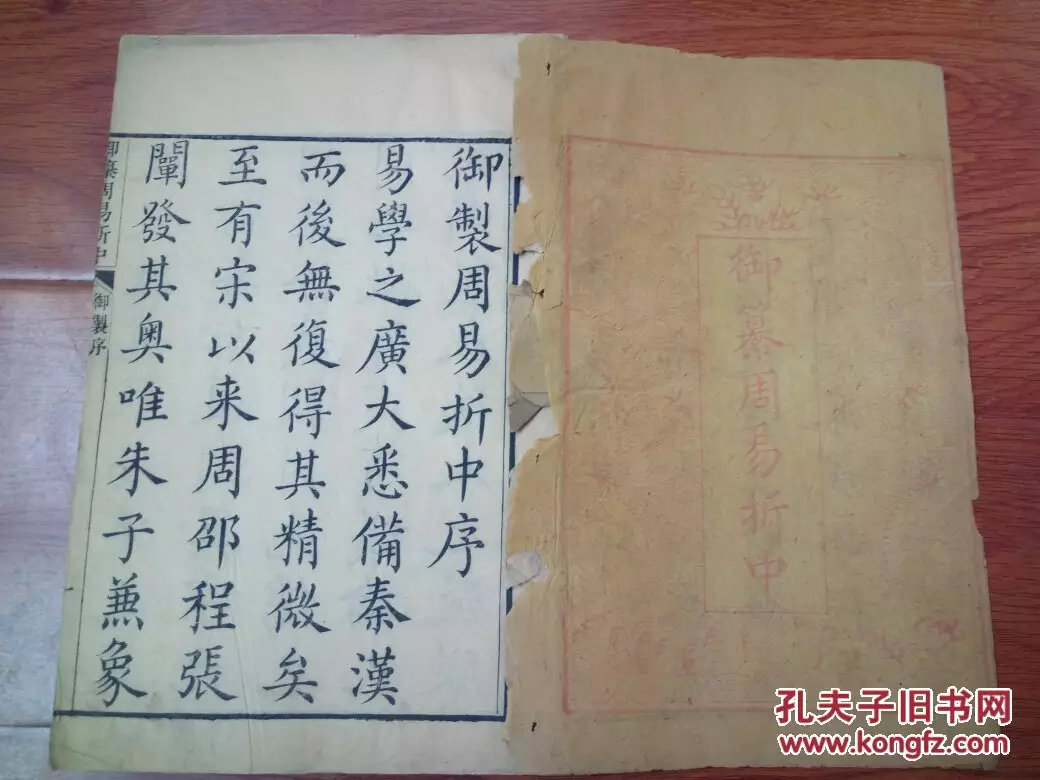 御纂周易折中
御製周易折中序
易學之廣大悉備秦漢
而後無復得其精微矣
至有宋以来周邵程張
闡發其奥唯朱子蕪象
御纂周易折中
御製序
孔夫子旧书网
www.kongfz.com